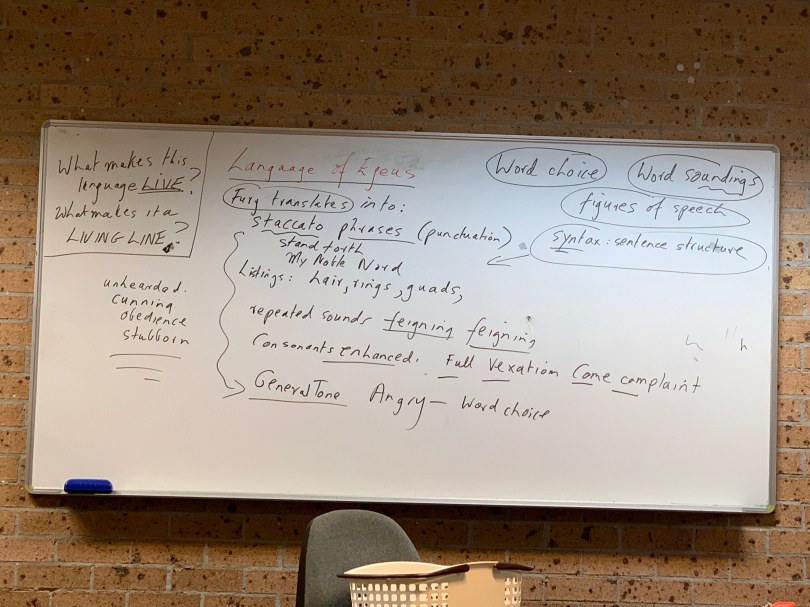 What makes this
language LIVE?
What makes it a
LIVING LINE?
unhearded.
cunning
obedience
stubborn
Language of Egeus
Fury translates into:
staccato phrases (punctuation)
stand forth
My Noble Nord
Listings: hair, rings, guads,
repeated sounds feigning feigning
Consonants enhanced. Full Vexation Come complaint
General Tone Angry — Word choice
Word choice
Word soundings
figures of speech
syntax: sentence structure
h
h